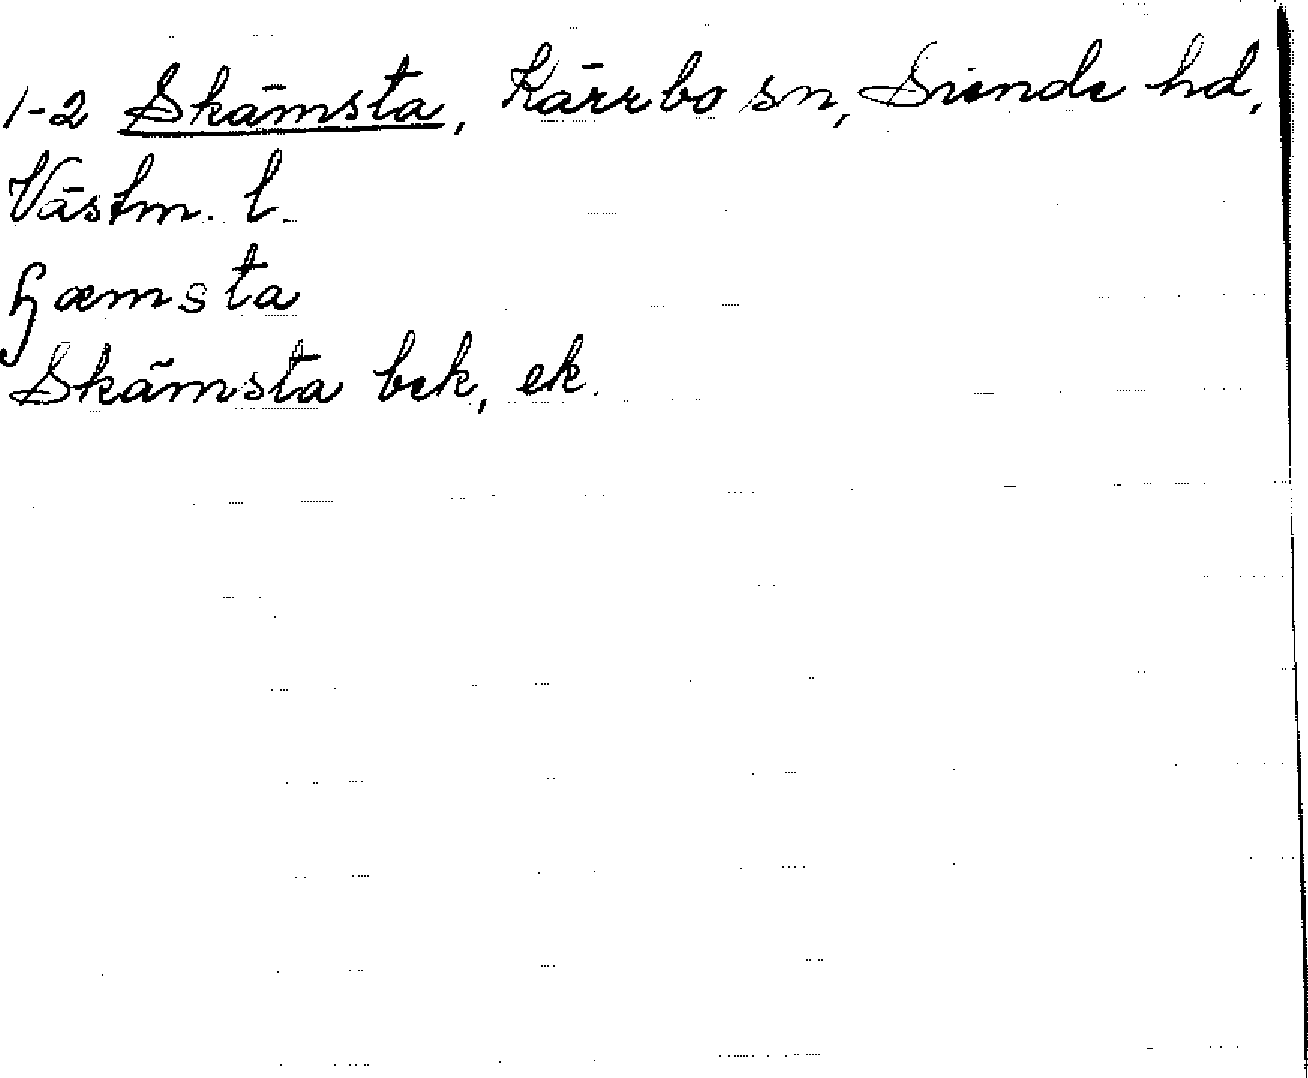 1-2 Skämsta, Kärrbo sn, Siende hd,
Västm. l.
ɧæmsta
Skämsta bck, ek.